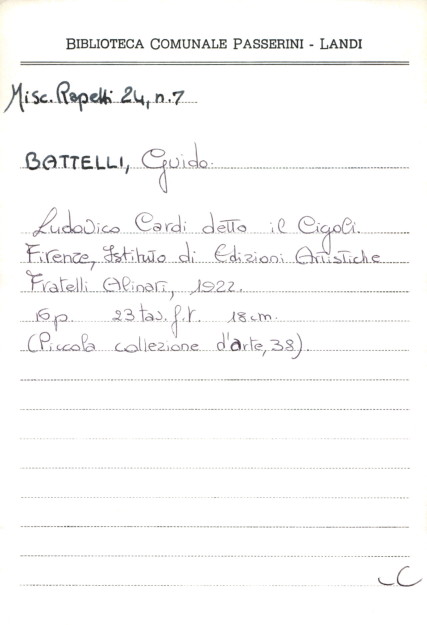 BIBLIOTECA COMUNALE PASSERINI - LANDI
Misc. Rapetti 24, n.7
BATTELLI, Guido.
Ludovico Cardi detto il Cigoli.
Firenze, Istituto di Edizioni Artistiche
Fratelli Alinari, 1922.
16 p. 23 tav. f.t. 18 cm.
(Piccola collezione d'arte, 38).